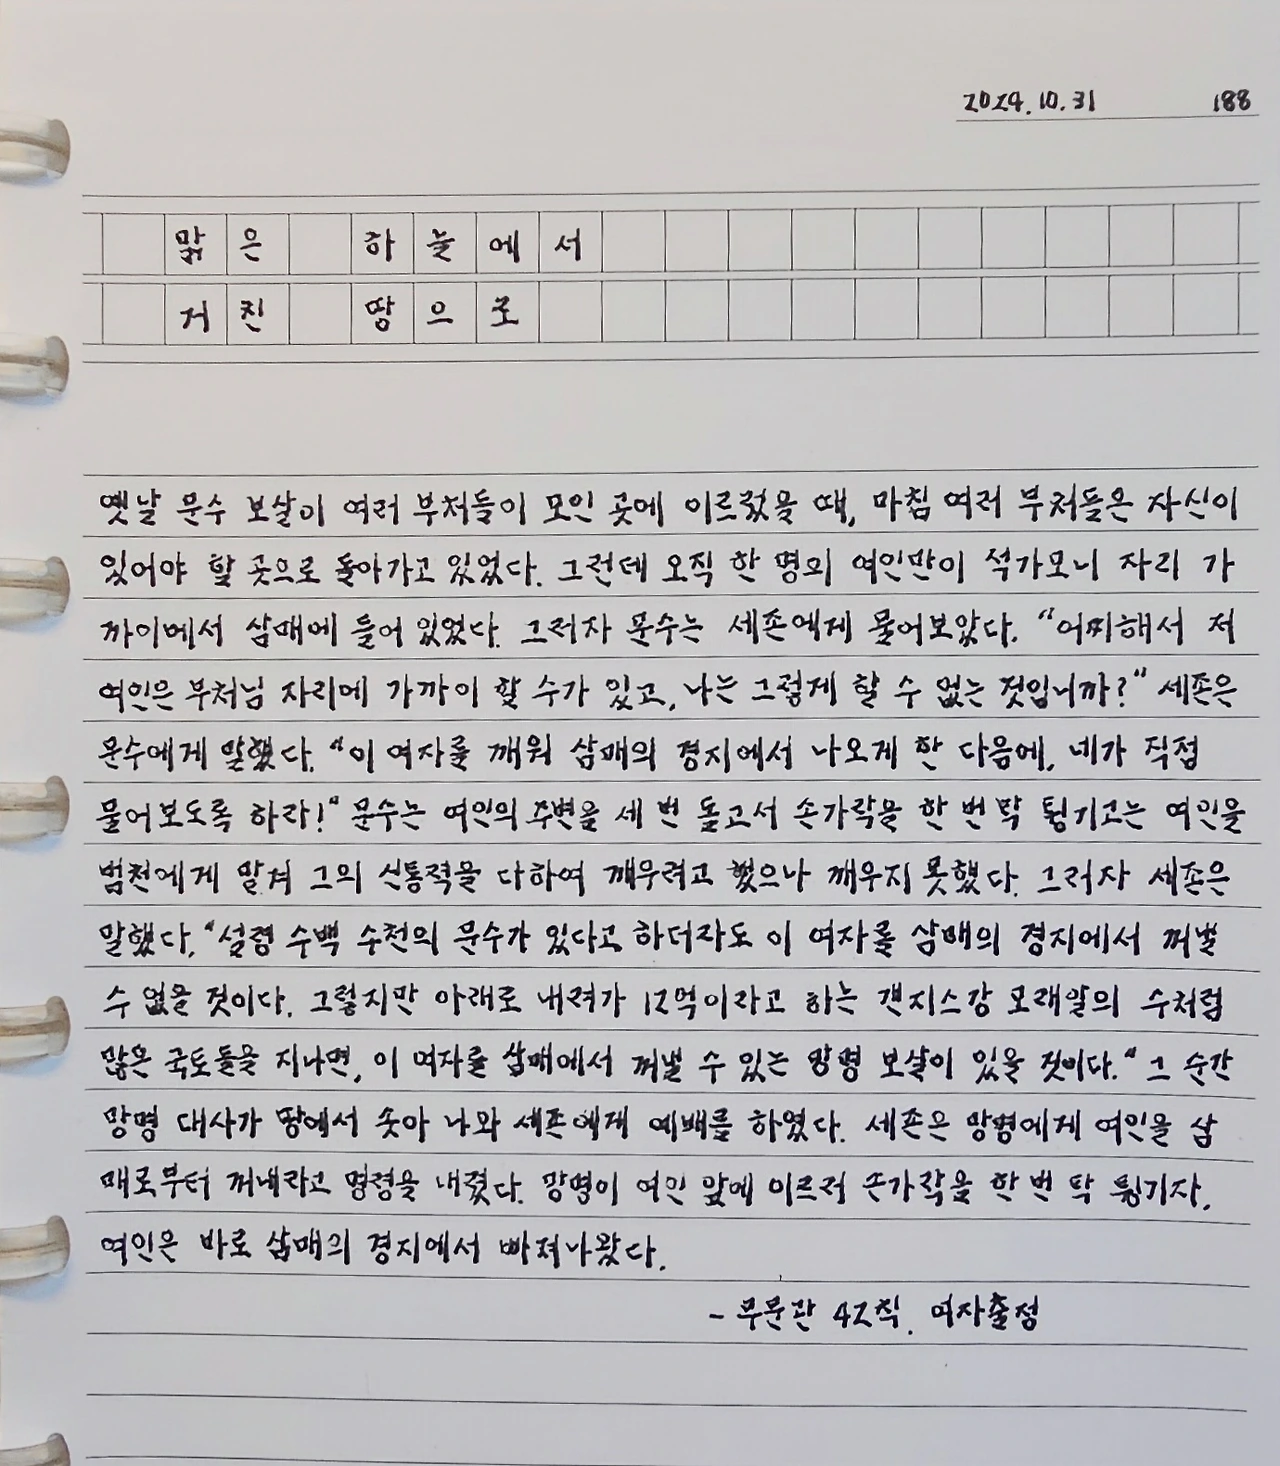 2024.10.31 188
맑은 하늘에서
거친 땅으로
옛날 문수 보살이 여러 부처들이 모인 곳에 이르렀을 때, 마침 여러 부처들은 자신이
있어야 할 곳으로 돌아가고 있었다. 그런데 오직 한 명의 여인만이 석가모니 자리 가
까이에서 삼매에 들어 있었다. 그러자 문수는 세존에게 물어보았다. "어찌해서 저
여인은 부처님 자리에 가까이 할 수가 있고, 나는 그렇게 할 수 없는 것입니까?" 세존은
문수에게 말했다. "이 여자를 깨워 삼매의 경지에서 나오게 한 다음에, 네가 직접
물어보도록 하라!" 문수는 여인의 주변을 세 번 돌고서 손가락을 한 번 탁 튕기고는 여인을
범천에게 맡겨 그의 신통력을 다하여 깨우려고 했으나 깨우지 못했다. 그러자 세존은
말했다. "설령 수백 수천의 문수가 있다고 하더라도 이 여자를 삼매의 경지에서 꺼낼
수 없을 것이다. 그렇지만 아래로 내려가 12억이라고 하는 갠지스강 모래알의 수처럼
많은 국토들을 지나면, 이 여자를 삼매에서 꺼낼 수 있는 망명 보살이 있을 것이다." 그 순간
망명 대사가 땅에서 솟아 나와 세존에게 예배를 하였다. 세존은 망명에게 여인을 삼
매로부터 꺼내라고 명령을 내렸다. 망명이 여인 앞에 이르러 손가락을 한 번 탁 튕기자,
여인은 바로 삼매의 경지에서 빠져나왔다.
- 무문관 42칙. 여자출정